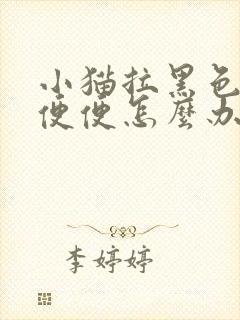 小猫拉黑色
便便怎麼办
李婷婷